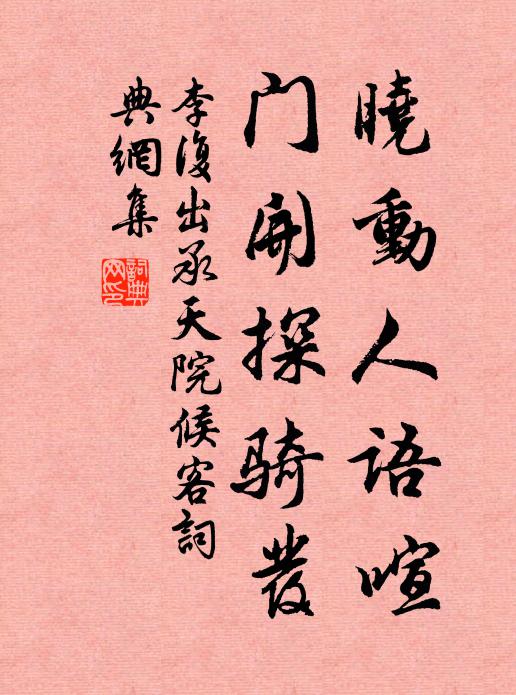 曉動人語喧
门開探骑發
李復出承天院候客詞
典網集
詞典网印